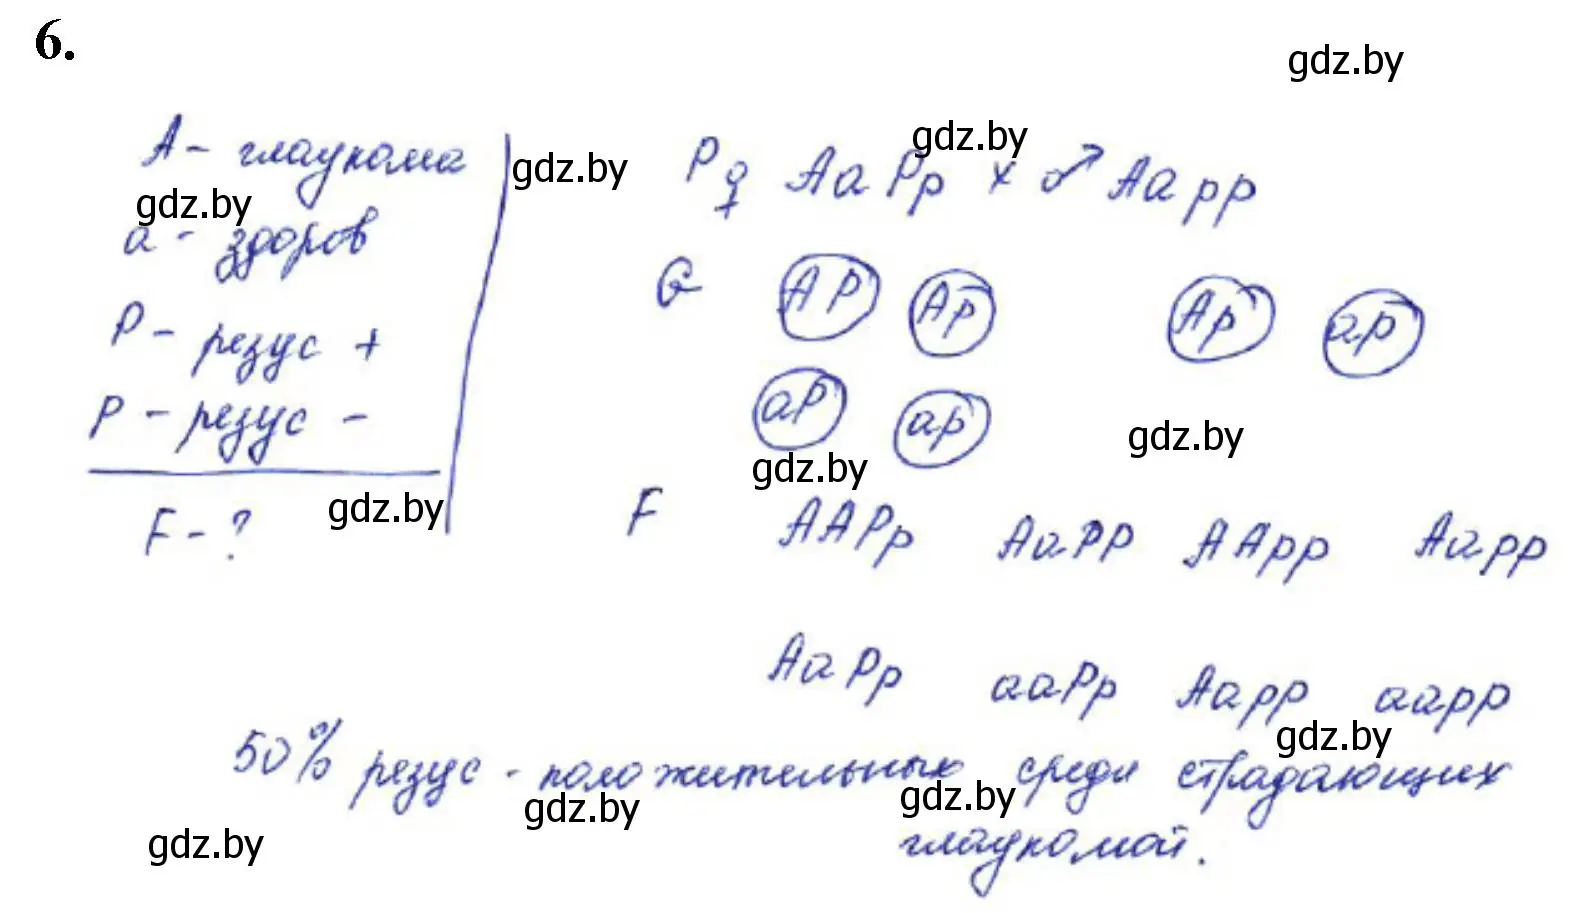 6.
gdz.by
А - глаукома
gdz.by
P ♀ Aa Pp × ♂ Aa pp
gdz.by
gdz.by
а - здоров
G AP Ap Ap ap
P - резус +
aP ap
р - резус -
gdz.by
gdz.by
F - ?
gdz.by
F AAPp AaPP AApp Aapp
AaPp aaPp Aapp aapp
gdz.by
50% резус - положительных среди страдающих
gdz.by
gdz.by
gdz.by
глаукомой.